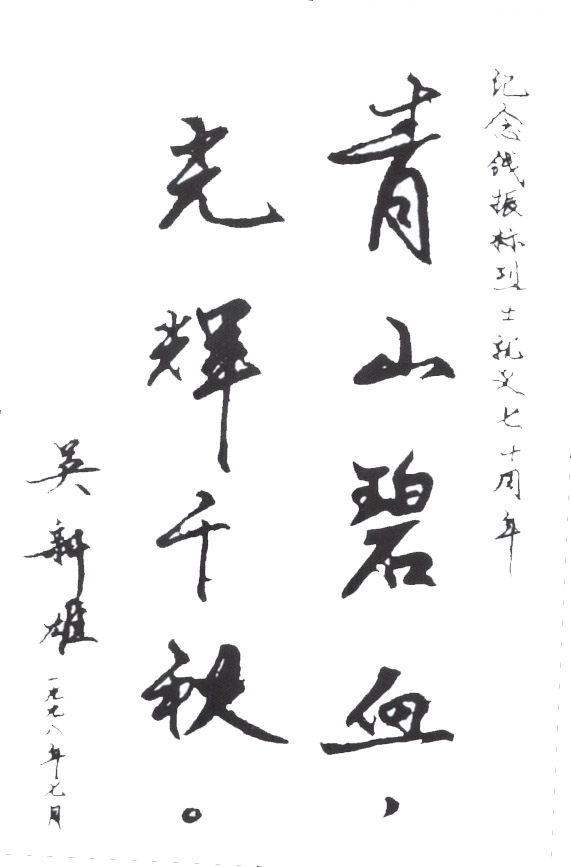 纪念钱振标烈士就义七十周年
青山碧血,
光辉千秋。
吴新雄
一九九八年七月